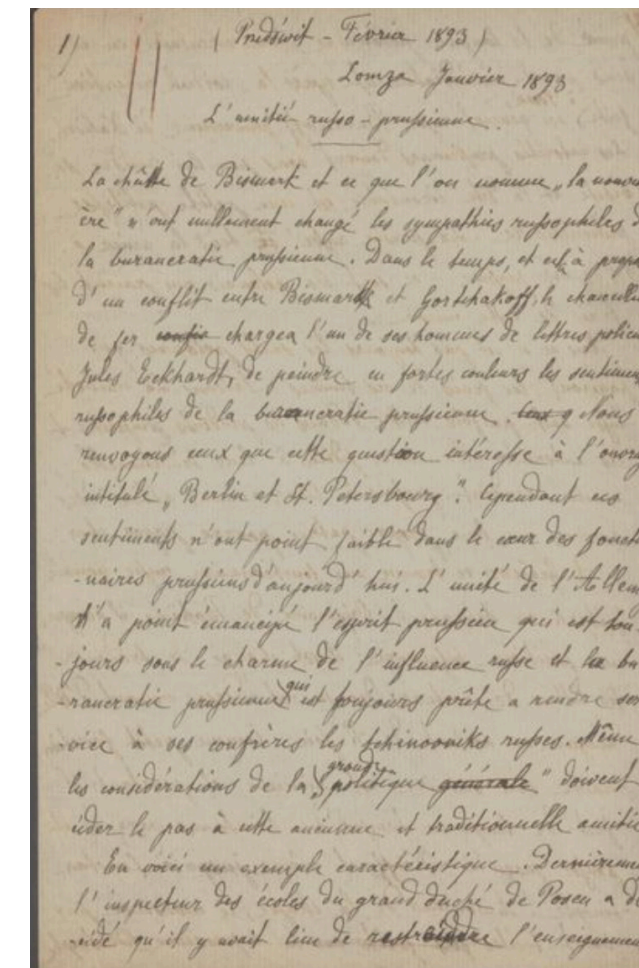 1) (Predświt - Février 1893)
Lomza Janvier 1893
L'amitié russo-prussienne.
La chûtte de Bismark et ce que l'on nomme "la nouve
ère" n'ont nullement changé les sympathies russophiles d
la burancratie prussienne. Dans le temps, et à propo
d'un conflit entre Bismark et Gortchakoff, le chancelie
de fer chargea l'un de ses hommes de lettres polici
Jules Eckhardt, de peindre en fortes couleurs les sentimen
russophiles de la burancratie prussienne. Nous
renvoyons ceux que cette question intéresse à l'ouvra
intitulé "Berlin et St. Petersbourg". Cependant ces
sentiments n'ont point faibli dans le cœur des foncti
-naires prussiens d'aujourd'hui. L'unité de l'Allem
n'a point émancipé l'esprit prussien qui est tou-
-jours sous le charme de l'influence russe et la bu
-rancratie prussienne qui est toujours prête a rendre ser
-vice à ses confrères les tchinovniks russes. Même
les considérations de la "grande politique générale" doivent
céder le pas à cette ancienne et traditionnelle amitié
En voici un exemple caractéristique. Dernièreme
l'inspecteur des écoles du grand duché de Posen a dé
-cidé qu'il y avait lieu de restreindre l'enseignemen